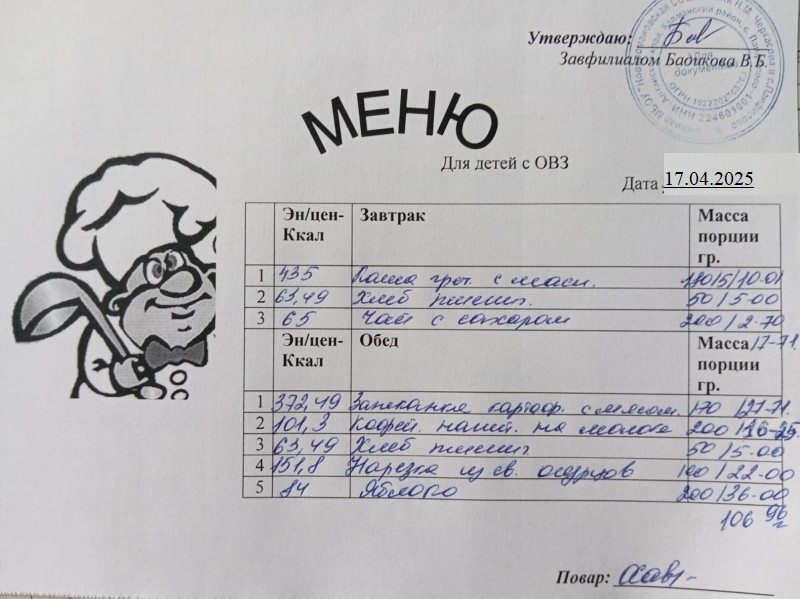 Утверждаю:
Завфилиалом Бадикова В.Б.
для документов
ОГРН
ИНН 224801001
МЕНЮ
Для детей с ОВЗ
Дата 17.04.2025
Эн/цен-Ккал Завтрак Масса порции гр.
1 435 Каша греч. с масл. /5/10-01
2 63,49 Хлеб пшенич. 50/5-00
3 65 Чай с сахаром 200/2-70
Эн/цен-Ккал Обед Масса порции гр. /17-71
1 372,49 Запеканка картоф. с мясом. 170/27-71
2 101,3 Кофей. напит. на молоке 200/16-25
3 63,49 Хлеб пшенич. 50/5-00
4 151,8 Нарезка из св. огурцов 100/22-00
5 84 Яблоко 200/36-00
106 96
Повар: